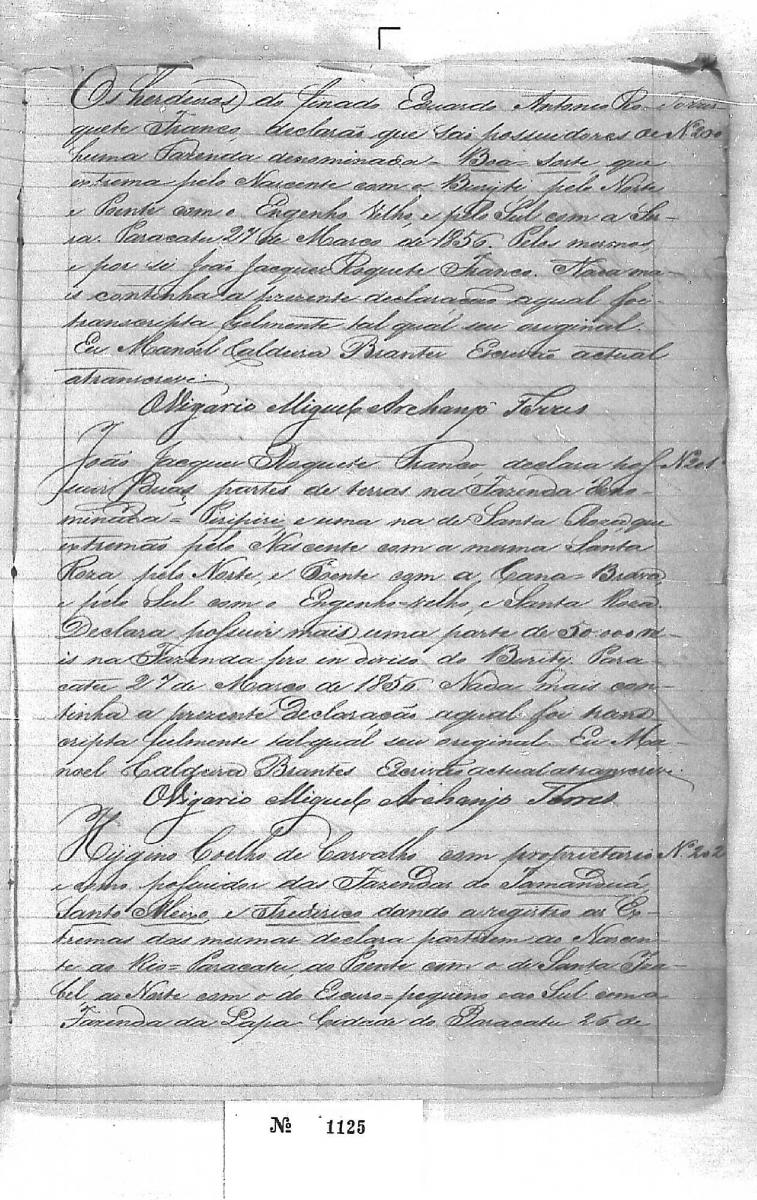 Os herdeiros do finado Eduardo Antonio Ro- Torres
quete Franco, declarão que são possuidores de Nº 200
huma Fazenda denominada = Boa-Sorte que
extrema pelo Nascente com o Buriti pelo Norte
e Poente com o Engenho Velho, e pelo Sul com a Ser-
ra. Paracatu 27 de Março de 1856. Pelos mesmos,
e por si João Jacques Roquete Franco. Nada ma-
is continha a prezente declaração aqual foi
transcripta fielmente tal qual seu original.
Eu Manoel Caldeira Brantes Escrivão actual
atranscrevi.
O Vigario Miguel Archanjo Torres
João Jacques Roquete Franco, declara pos- Nº 201
suir duas partes de terras na Fazenda deno-
minada = Piripiri, e uma na de Santa Roza, que
extremão pelo Nascente com a mesma Santa
Roza pelo Norte, e Poente com a Cana-Brava
e pelo Sul com o Engenho-Velho, e Santa Roza.
Declara possuir mais uma parte de 50.000 r-
is na Fazenda pro in diviso do Burity. Para-
catu 27 de Março de 1856 Nada mais con-
tinha a prezente declaração aqual foi trans-
cripta fielmente tal qual seu original. Eu Ma-
noel Caldeira Brantes Escrivão actual atranscrevi.
O Vigario Miguel Archanjo Torres
Hygino Coelho de Carvalho, com proprietario Nº 202
e como possuidor das Fazendas do Tamanduá,
Santo Meyo, e Frederico dando a registro as Ex-
tremas das mesmas declara partirem do Nascen-
te ao Rio = Paracatu, ao Poente com o de Santa Iza-
bel, ao Norte com o do Escuro-pequeno e ao Sul com a
Fazenda da Lapa Cidade do Paracatu 26 de
Nº 1125